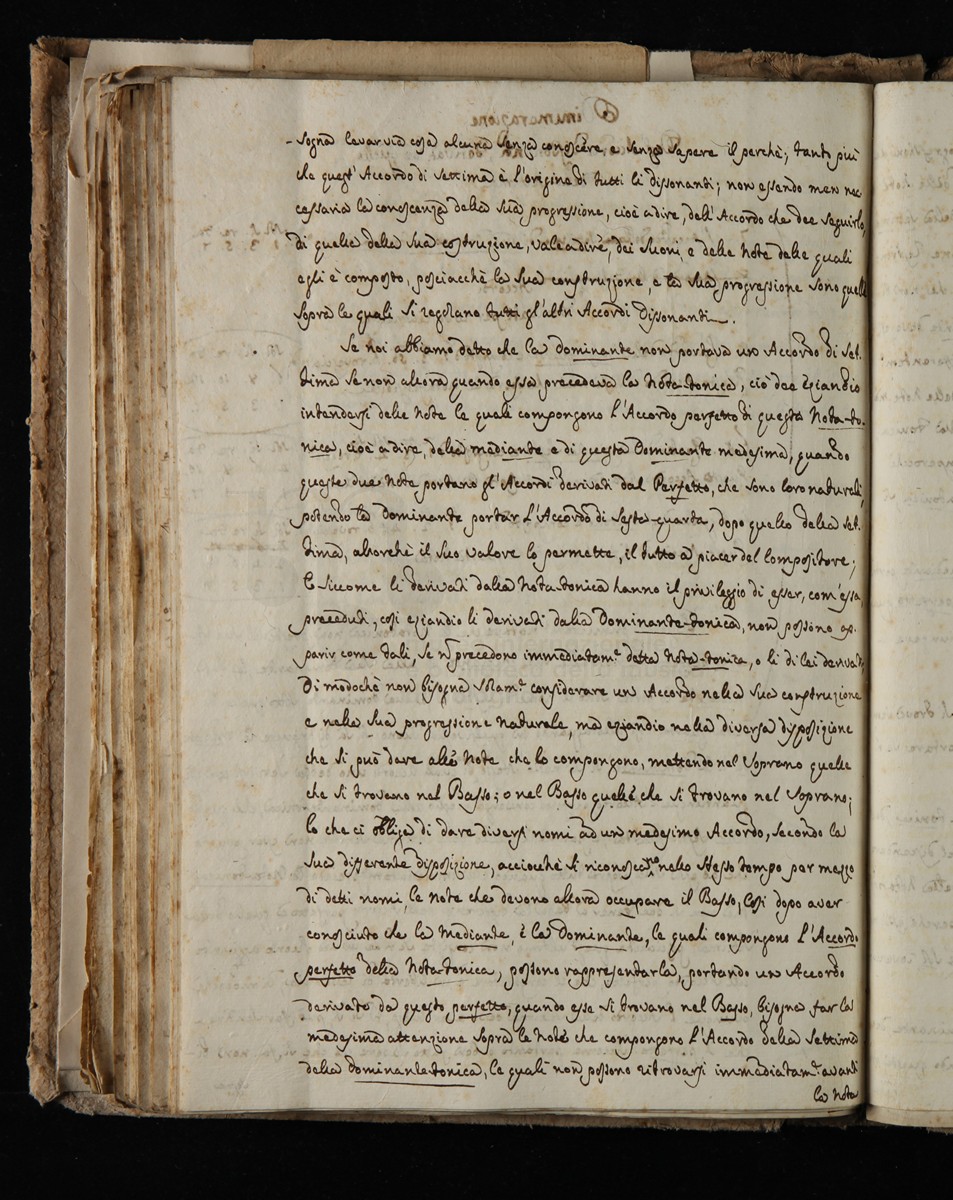 -sogna levar via cosa alcuna senza conoscere, e senza sapere il perchè; tanto più
che quest'Accordo di Settima è l'origine di tutti li dissonanti; non essendo men nec-
cessaria la conoscenza della sua progressione, cioè a dire, dell'Accordo che dee seguirlo,
di quella della sua costruzione, vale a dire, dei suoni, e delle Note delle quali
egli è composto, posciacchè la sua construzzione, e la sua progressione sono quelle
sopra le quali si regolano tutti gl'altri Accordi Dissonanti.
Se noi abbiamo detto che la dominante non portava un Accordo di Set-
tima se non allora quando essa precedeva la Nota-tonica, ciò dee eziandio
intendersi delle Note le quali compongono l'Accordo perfetto di questa Nota-to-
nica, cioè a dire, della mediante e di questa Dominante medesima, quando
queste due Note portano gl'Accordi derivati dal Perfetto, che sono loro naturali,
potendo la Dominante portar l'Accordo di Sesta-quarta, dopo quello della Set-
tima, allorchè il suo valore lo permette, il tutto a piacer del Compositore;
E siccome li derivati dalla Nota-tonica hanno il privileggio di esser, com'essa,
preceduti, così eziandio li derivati dalla Dominante-tonica, non possono ap-
parir come tali, se ñ precedono immediatamte detta Nota-tonica, o li di lei derivati,
Di modochè non bisogna solamte considerare un Accordo nella sua construzione
e nella sua progressione naturale, ma eziandio nella diversa disposizione
che si può dare alle Note che lo compongono, mettendo nel Soprano quelle
che si trovano nel Basso; o nel Basso quelle che si trovano nel Soprano;
lo che ci obliga di dare diversi nomi ad un medesimo Accordo, secondo la
sua differente disposizione, acciocchè si riconoscano nello stesso tempo per mezzo
di detti nomi, le Note che devono allora occupare il Basso, Così dopo aver
conosciuto che la Mediante, e la Dominante, le quali compongono l'Accordo
perfetto della Nota-tonica, possono rappresentarla, portando un Accordo
derivato da questo perfetto, quando esse si trovano nel Basso, bisogna far la
medesima attenzione sopra le Note che compongono l'Accordo della Settima
della Dominante tonica, le quali non possono ritrovarsi immediatamte avanti
la Nota